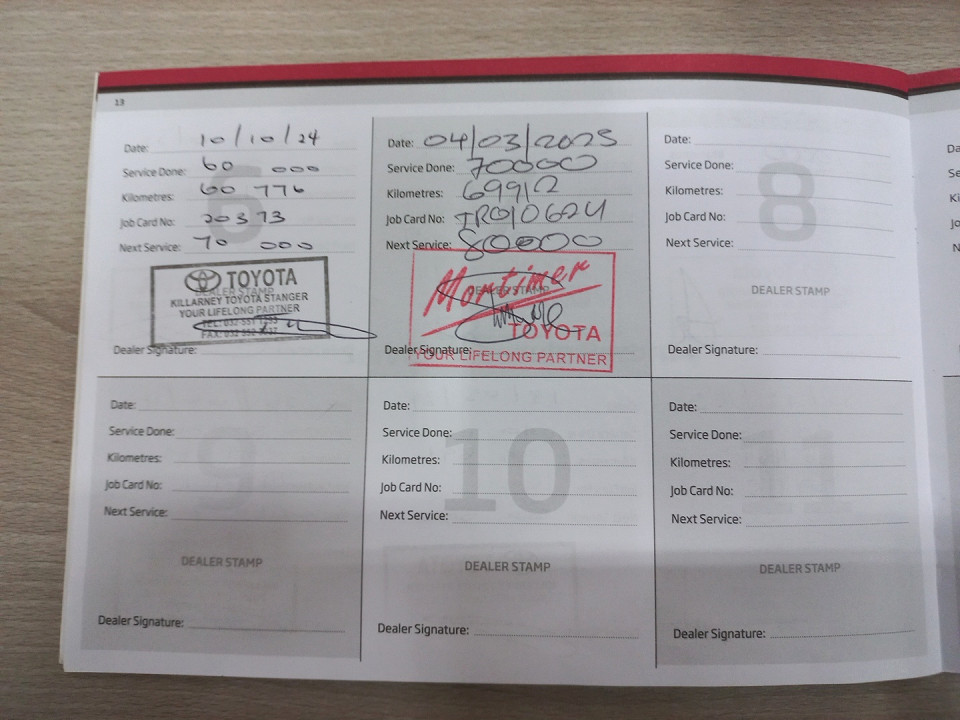 13
Date: 10/10/24
Service Done: 60 000
Kilometres: 60 776
Job Card No: 20373
Next Service: 70 000
6
DEALER STAMP
TOYOTA
KILLARNEY TOYOTA STANGER
YOUR LIFELONG PARTNER
TEL: 032-551
FAX: 032
Dealer Signature:
Date: 04/03/2025
Service Done: 70000
Kilometres: 69912
Job Card No:
Next Service: 80000
DEALER STAMP
Mortimer
TOYOTA
YOUR LIFELONG PARTNER
Dealer Signature:
Date:
Service Done:
Kilometres:
Job Card No:
Next Service:
8
DEALER STAMP
Dealer Signature:
Date:
Service Done:
Kilometres:
Job Card No:
Next Service:
9
DEALER STAMP
Dealer Signature:
Date:
Service Done:
Kilometres:
Job Card No:
Next Service:
10
DEALER STAMP
Dealer Signature:
Date:
Service Done:
Kilometres:
Job Card No:
Next Service:
11
DEALER STAMP
Dealer Signature:
Da
Se
Ki
Jo
N